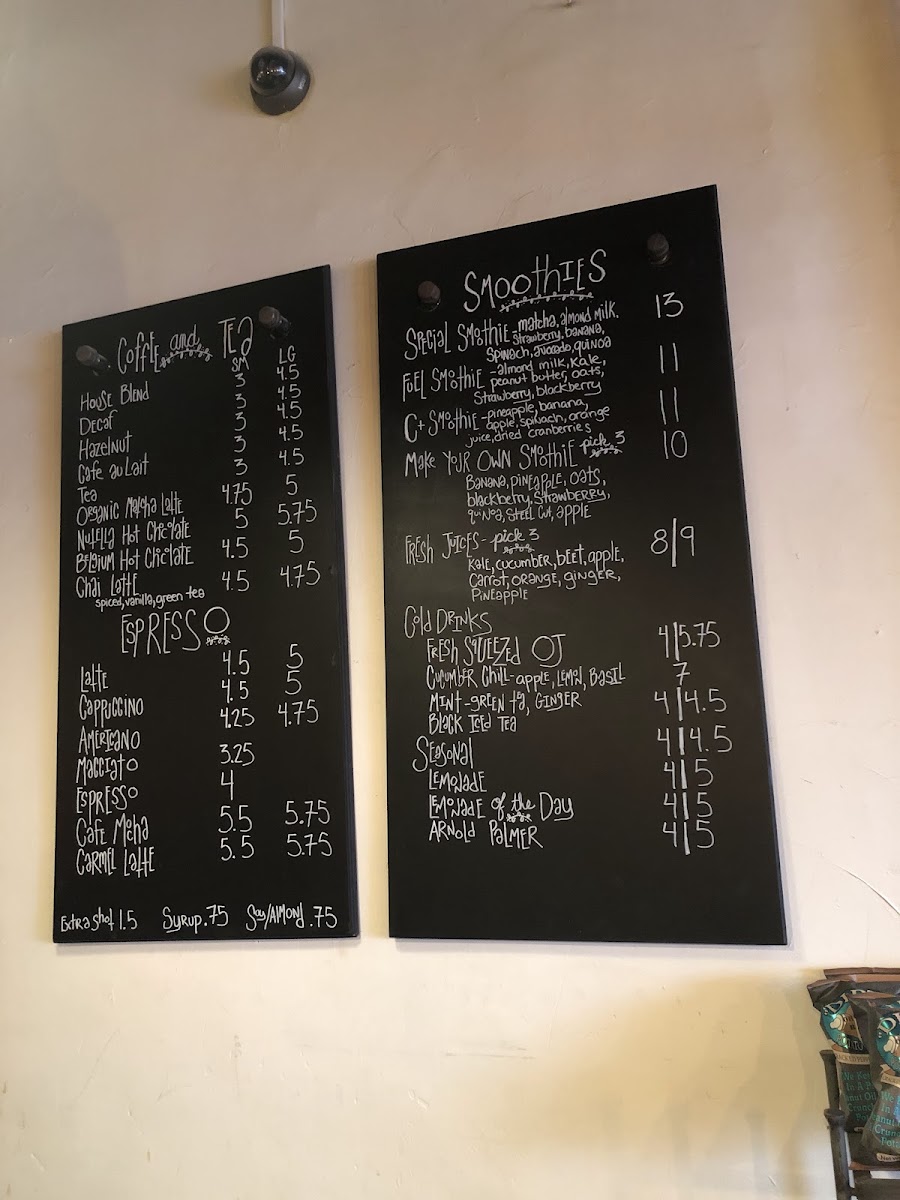 Coffee and Tea
SM LG
House Blend 3 4.5
Decaf 3 4.5
Hazelnut 3 4.5
Cafe au Lait 3 4.5
Tea 3 4.5
Organic Matcha Latte 4.75 5
Nutella Hot Choclate 5 5.75
Belgium Hot Choclate 4.5 5
Chai Latte 4.5 4.75
spiced, vanilla, green tea
Espresso
Latte 4.5 5
Cappuccino 4.5 5
Americano 4.25 4.75
Macciato 3.25
Espresso 4
Cafe Mcha 5.5 5.75
Carmel Latte 5.5 5.75
Extra shot 1.5 Syrup .75 Soy/Almond .75
Smoothies
Special Smothie - matcha, almond milk, 13
strawberry, banana,
spinach, avocado, quinoa
Fuel Smothie - almond milk, kale, 11
peanut butter, oats,
strawberry, blackberry
C+ Smothie - pineapple, banana, 11
apple, spinach, orange
juice, dried cranberries
Make Your Own Smothie pick 3 10
Banana, pineapple, oats,
blackberry, strawberry,
quinoa, steel cut, apple
Fresh Juices - pick 3 8|9
kale, cucumber, beet, apple,
carrot, orange, ginger,
pineapple
Cold Drinks
Fresh Squeezed OJ 4|5.75
Cucumber Chill - apple, lemon, basil 7
Mint-green tea, ginger 4|4.5
Black Iced Tea 4|4.5
Seasonal
Lemonade 4|5
Lemonade of the Day 4|5
Arnold Palmer 4|5